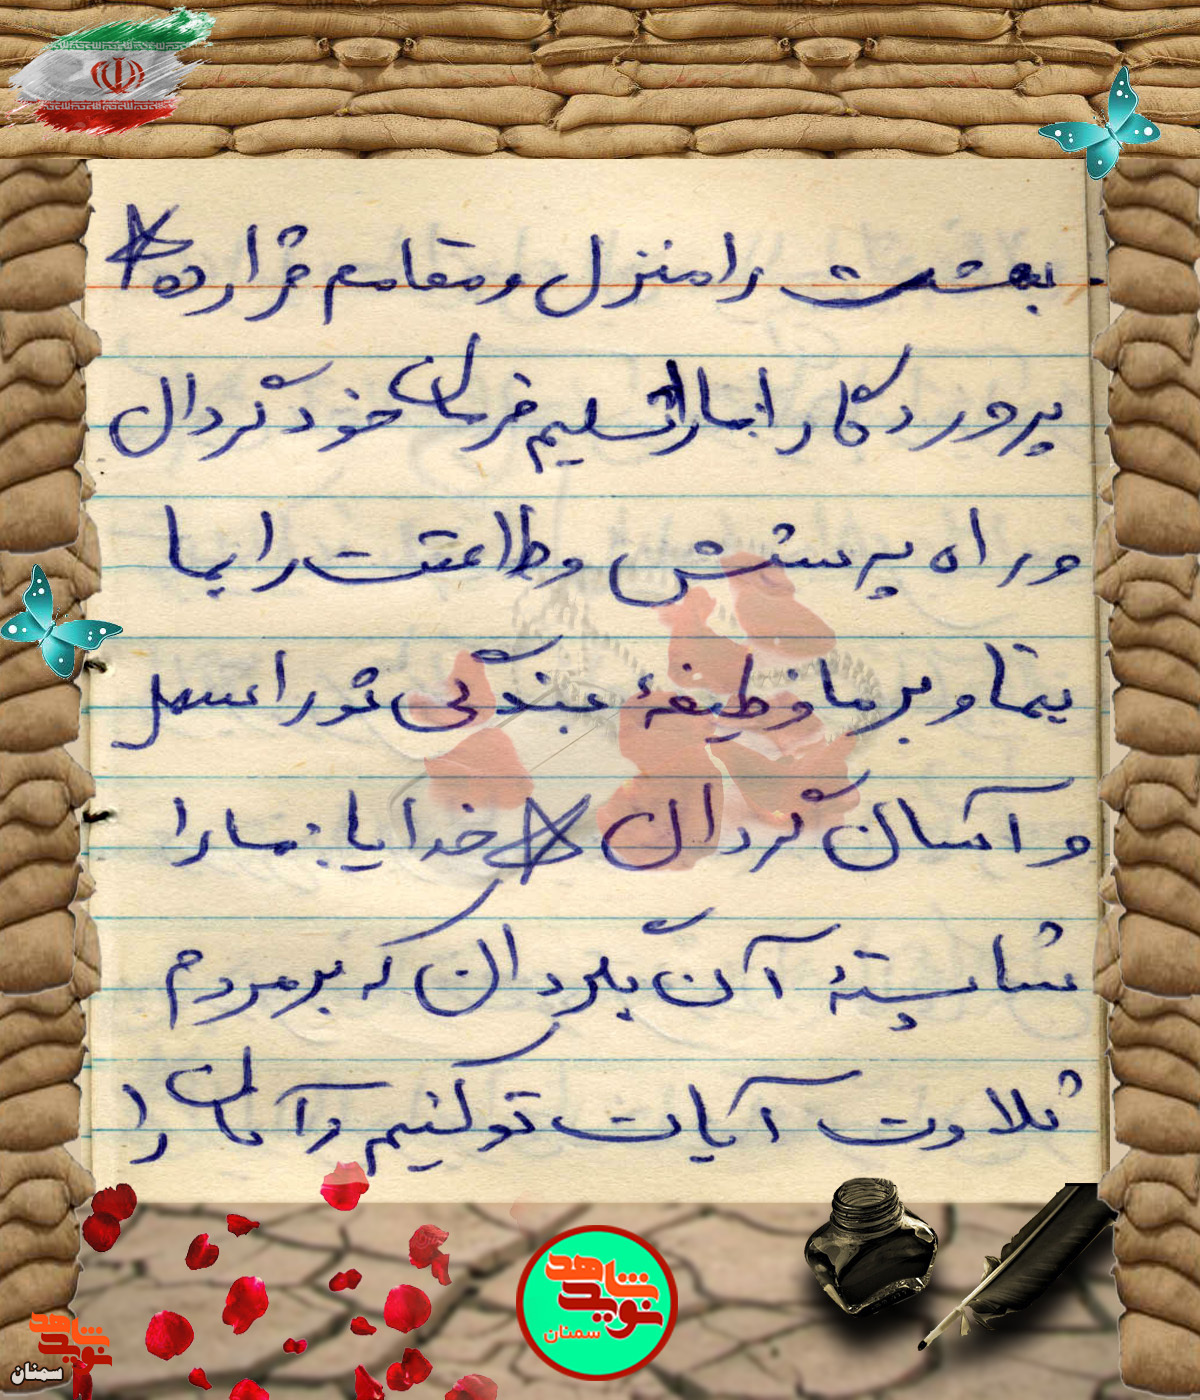 بهشت را منزل و مقامم قرار ده
پروردگارا ما را تسلیم فرمان خود گردان
و راه پرستش و طاعتت را بما
بنما و بر ما وظیفهٔ بندگی تو را سهل
و آسان گردان خدایا: ما را
شایستهٔ آن بگردان که بر مردم
تلاوت آیات تو کنیم و آنان را
شاهد
نوید
سمنان
شاهد
نوید
سمنان